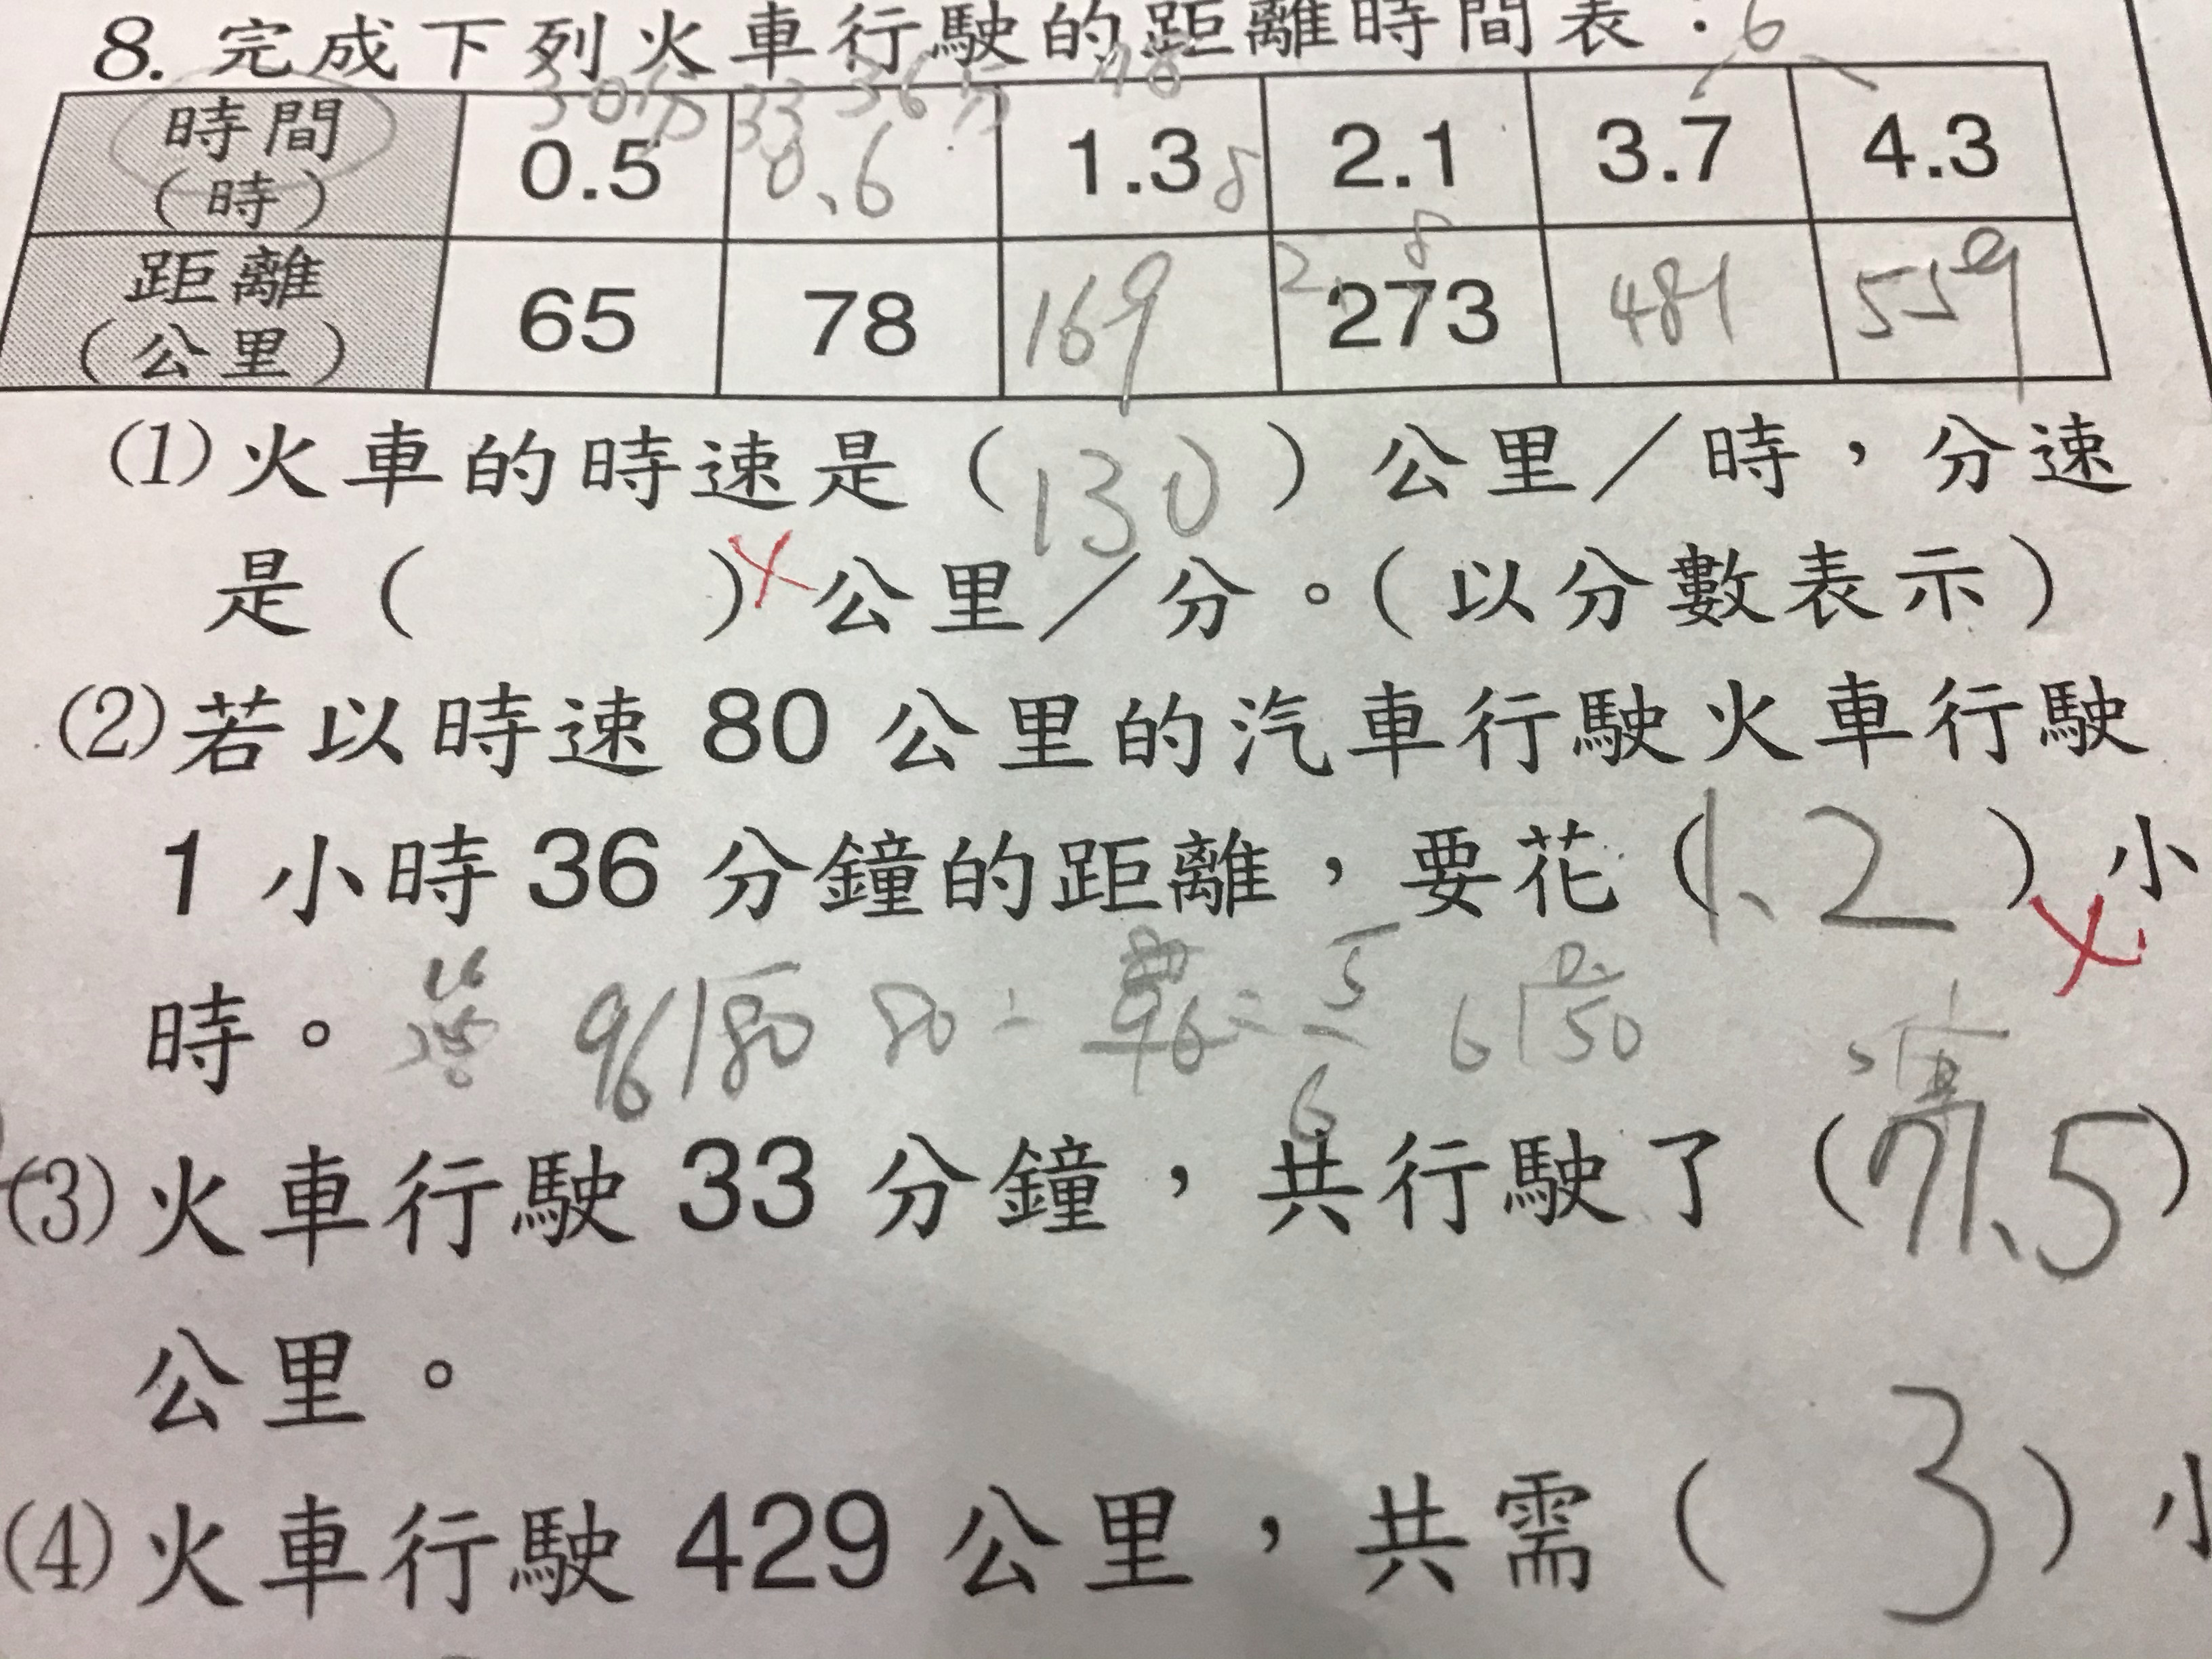 8. 完成下列火車行駛的距離時間表：6
30分 33 36分 78
時間（時） 0.5 0.6 1.3 8 2.1 3.7 4.3
距離（公里） 65 78 169 2 8 273 481 559
(1) 火車的時速是（130）公里／時，分速
是（ ）公里／分。（以分數表示）
(2) 若以時速 80 公里的汽車行駛火車行駛
1 小時 36 分鐘的距離，要花（1.2）小
時。 96 80 80 ÷ 96 = 5 6 6 50
(3) 火車行駛 33 分鐘，共行駛了（71.5）
公里。
(4) 火車行駛 429 公里，共需（3）小